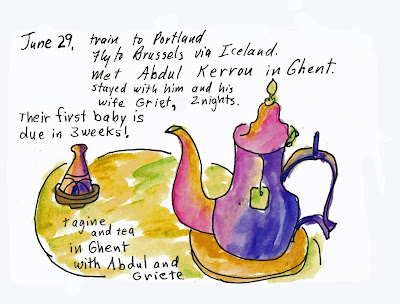 June 29, train to Portland
Fly to Brussels via Iceland.
Met Abdul Kerrou in Ghent.
stayed with him and his
wife Griet, 2 nights.
Their first baby is
due in 3 weeks!
tagine
and tea
in Ghent
with Abdul and
Griete